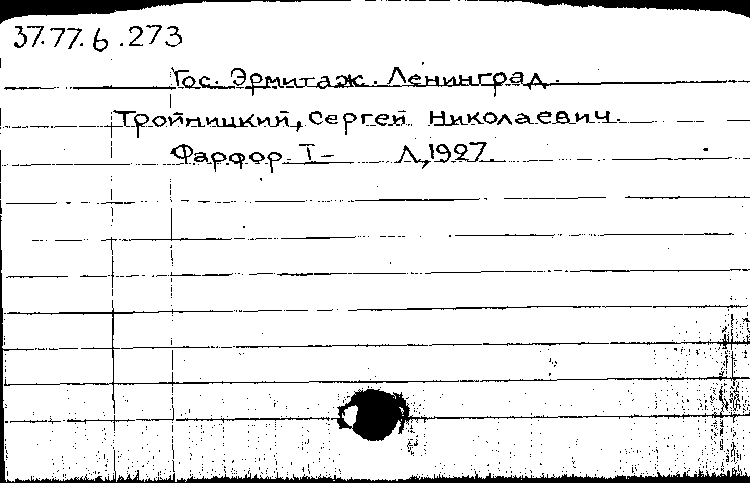 37.77.6.273
Гос. Эрмитаж. Ленинград.
Тройницкий, Сергей Николаевич.
Фарфор. I– Л, 1927.